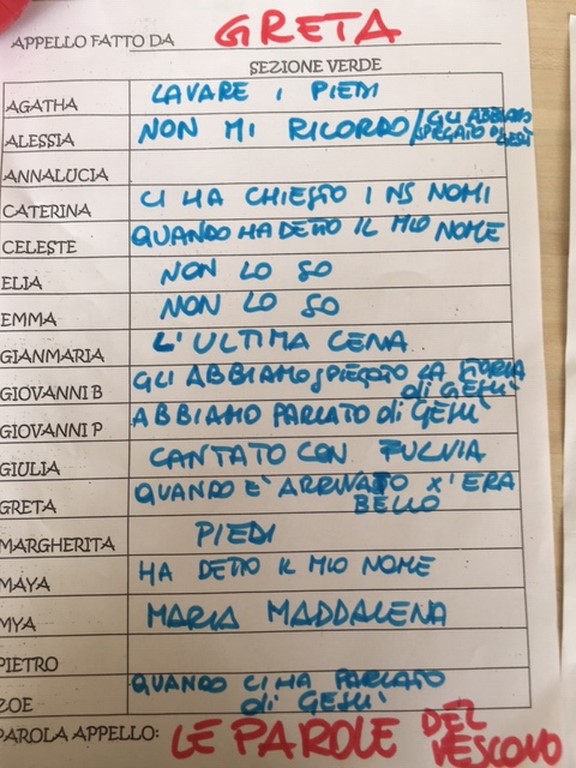 APPELLO FATTO DA GRETA
SEZIONE VERDE
AGATHA LAVARE I PIEDI
ALESSIA NON MI RICORDO/GLI ABBIAMO SPIEGATO DI GESÙ
ANNALUCIA
CATERINA CI HA CHIESTO I NS NOMI
CELESTE QUANDO HA DETTO IL MIO NOME
ELIA NON LO SO
EMMA NON LO SO
GIANMARIA L'ULTIMA CENA
GIOVANNI B GLI ABBIAMO SPIEGATO LA STORIA di GESU'
GIOVANNI P ABBIAMO PARLATO di GESU'
GIULIA CANTATO CON FULVIA
GRETA QUANDO E' ARRIVATO X' ERA BELLO
MARGHERITA PIEDI
MAYA HA DETTO IL MIO NOME
MYA MARIA MADDALENA
PIETRO
ZOE QUANDO CI HA PARLATO di GESU'
PAROLA APPELLO: LE PAROLE DEL VESCOVO